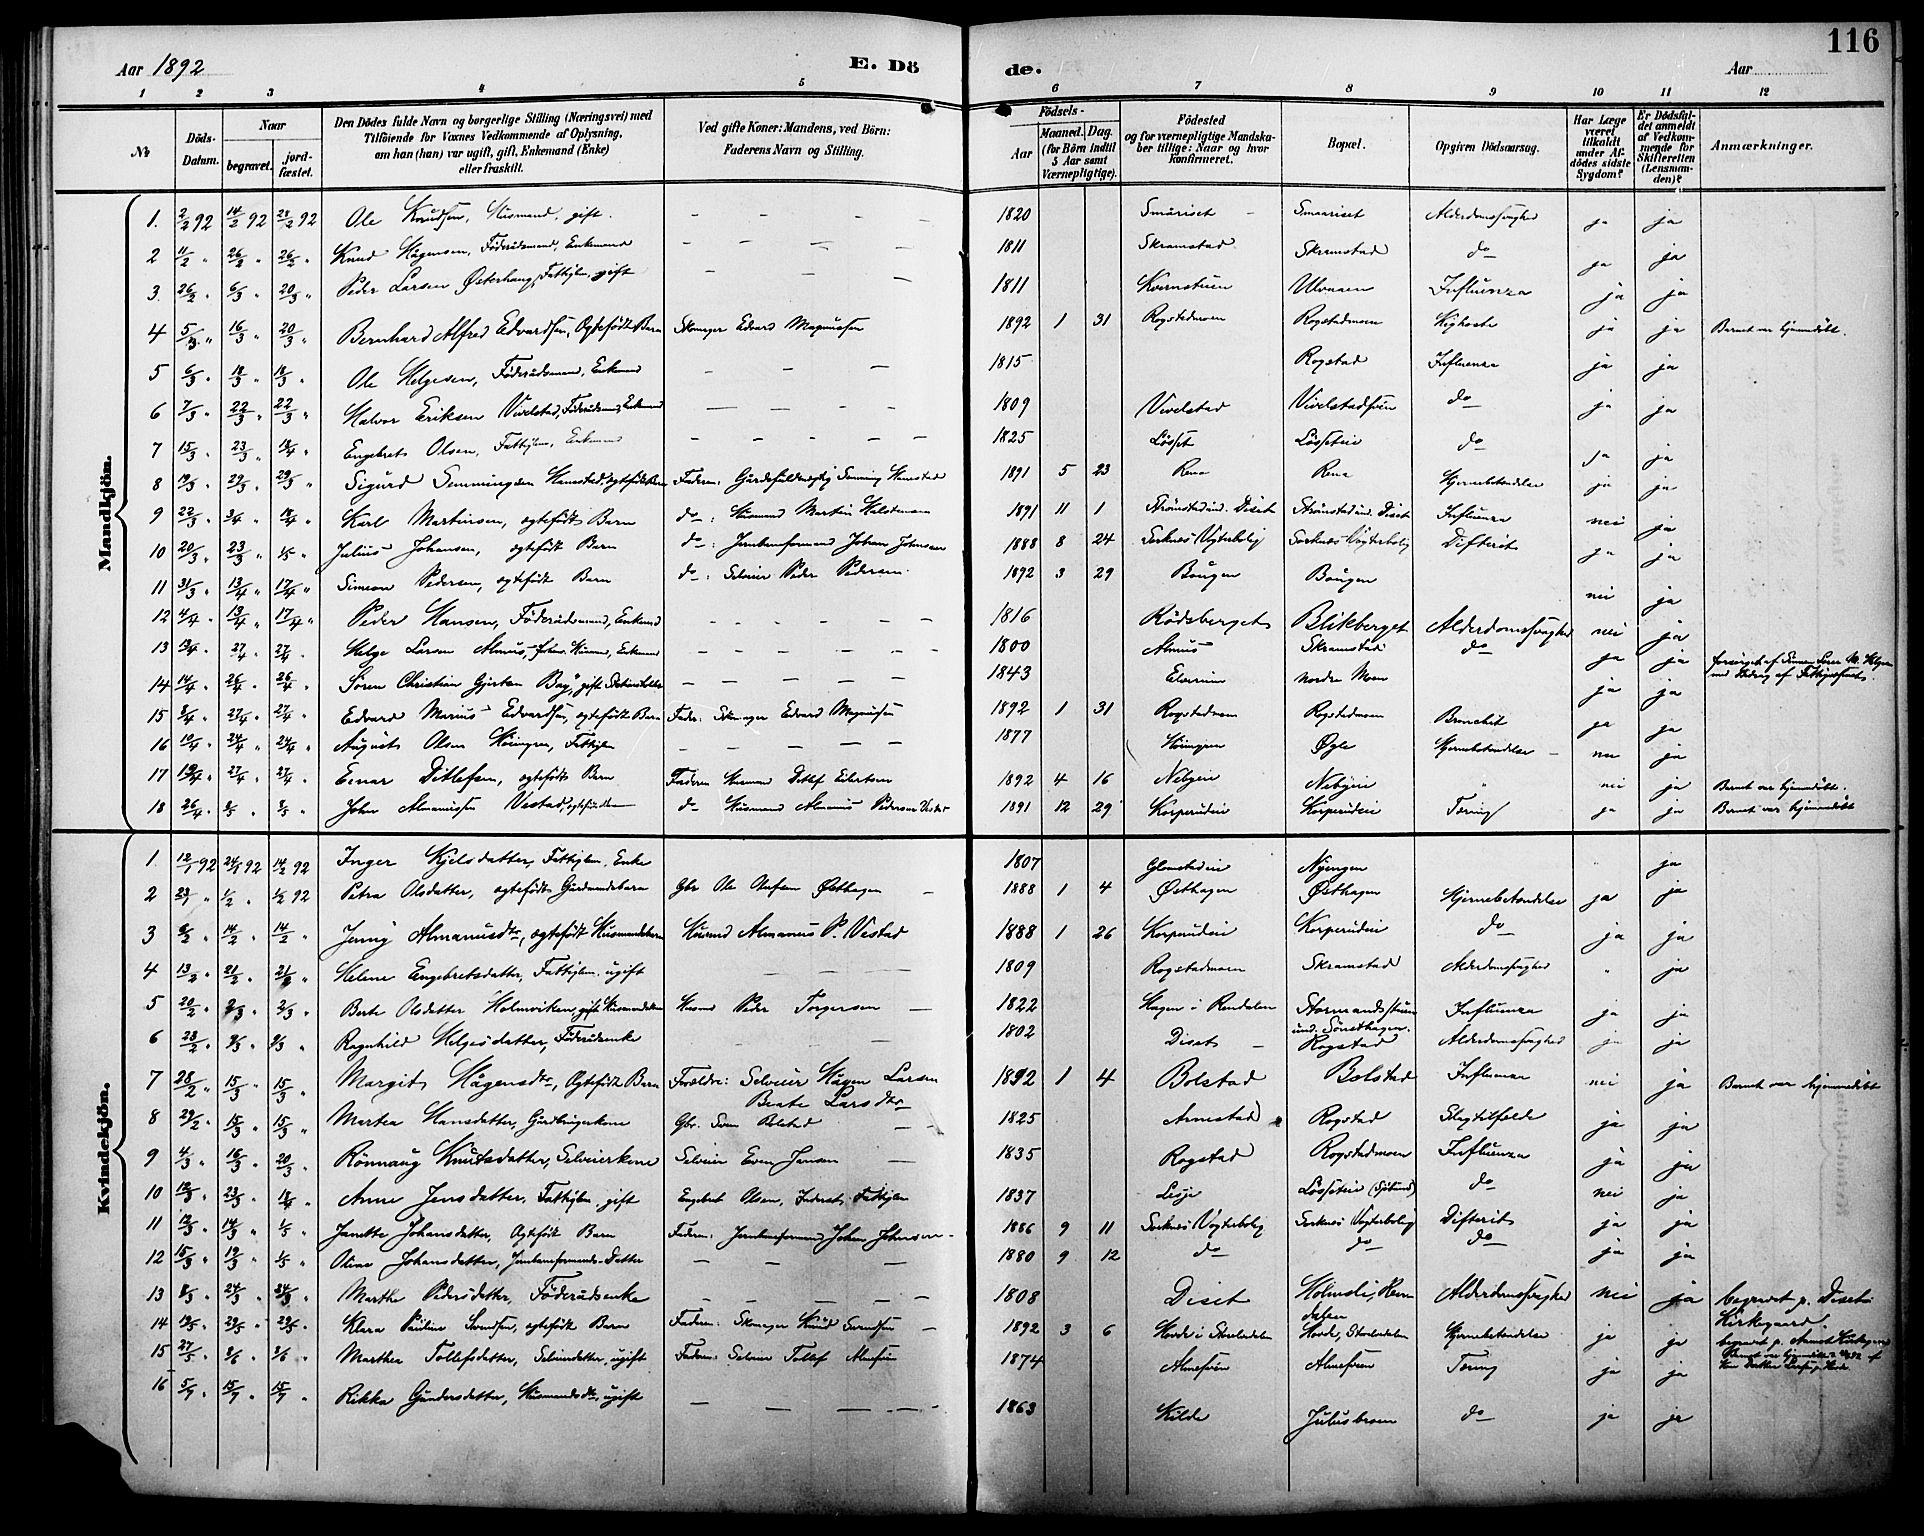 116
Aar 1892 E. Dö de. Aar
1 2 3 4 5 6 7 8 9 10 11 12
№
Döds-Datum.
Naar
begravet.
jord-fæstet.
Den Dödes fulde Navn og borgerlige Stilling (Næringsvei) med
Tilföiende for Voxnes Vedkommende af Oplysning,
om han (hun) var ugift, gift, Enkemand (Enke)
eller fraskilt.
Ved gifte Koner: Mandens, ved Börn:
Faderens Navn og Stilling.
Födsels-
Aar
Maaned. Dag.
(for Börn indtil
5 Aar samt
Værnepligtige).
Födested
og for værnepligtige Mandska-
ber tillige: Naar og hvor
konfirmeret.
Bopæl.
Opgiven Dödsaarsag.
Har Læge
været
tilkaldt
under Af-
dödes sidste
Sygdom?
Er Dödsfal-
det anmeldt
af Vedkom-
mende for
Skifteretten
(Lensman-
den)?
Anmærkninger.
Mandkjön.
1. 2/2 92 14/2 92 28/2 92 Ole Knudsen, Husmand, gift. — — — — 1820 Småriset Smaariset Alderdomssvaghed ja ja
2 11/2 " 26/2 " 26/2 " Knud Hågensen, Föderådsmand, Enkemand — — — — 1811 Skramstad Skramstad do ja ja
3. 26/2 " 6/3 " 20/3 " Peder Larsen Østerhaug, Fattiglem, gift — — — 1811 Kvernstuen Ulvaaen Influenza ja ja
4 5/3 " 16/3 " 20/3 " Bernhard Alfred Edvardsen, Ægtefödt Barn Skomager Edvard Magnussen 1892 1 31 Rogstadmoen Rogstadmoen Kighoste ja ja Barnet var hjemmedöbt.
5 6/3 " 18/3 " 18/3 " Ole Helgesen, Föderådsmand, Enkemand — — — 1815 Rogstad Influenza ja ja
6 7/3 " 22/3 " 22/3 " Halvor Eriksen Vivelstad, Föderådsmand, Enkemand — — — 1809 Vivelstad Vivelstadsveen do ja ja
7 15/3 " 23/3 " 18/4 " Engebret Olsen, Fattiglem, Enkemand — — — — 1825 Lösset Lösseteie do ja ja
8 19/3 " 29/3 " 29/3 " Sigurd Semmingsen Hanestad, ægtefödt Barn Faderen: Gårdsfuldmægtig Semming Hanestad 1891 5 23 Rena Rena Hjernebetændelse ja ja
9 22/3 " 3/4 " 18/4 " Karl Martinsen, ægtefödt Barn do: Husmand Martin Halvorsen 1891 11 1 Strömstad und. Diset Strömstad und. Diset Influenza nei ja
10 20/3 " 23/3 " 1/5 " Julius Johansen, ægtefödt Barn do: Jernbaneformand Johan Johnsen 1888 8 24 Sorknes Vogterbolig Sorknes Vogterbolig Difterit ja ja
11 31/3 " 13/4 " 17/4 " Simeon Pedersen, ægtefödt Barn do: Selveier Peder Pedersen. 1892 3 29 Bougen Bougen nei ja
12 4/4 " 13/4 " 17/4 " Peder Hansen, Föderådsmand, Enkemand — — — — 1816 Rödsberget Blikberget Alderdomssvaghed nei ja
13 27/4 " 27/4 " Helge Larsen Almus, Husmand, Enkemand — — — — 1800 Almus Skramstad do ja ja
14 14/4 " 26/4 " 26/4 " Sören Christian Gjertsen Bay, gift — — — — 1843 Elverum nordre Moen ja ja
15 8/4 " 27/4 " 27/4 " Edvard Marius Edvardsen, ægtefödt Barn Fader: Skomager Edvard Magnussen 1892 1 31 Rogstadmoen Rogstadmoen Bronchit ja ja
16 19/4 " 24/4 " 24/4 " August Olsen Höiingen, Fattiglem — — — — 1877 Höiingen Øgle Hjernebetændelse nei ja
17 19/4 " 27/4 " 27/4 " Einar Ditlefsen, ægtefödt Barn Faderen Husmand Ditlef Eilertsen 1892 4 16 Nebyeie Nebyeie " nei ja Barnet var hjemmedöbt.
18 26/4 " 8/5 " 8/5 " John Almanussen Vestad, ægtefödt do Husmand Almanus Pedersen Vestad 1891 12 29 Korperudeie Korperudeie Tæring ja ja Barnet var hjemmedöbt
Kvindekjön.
1. 12/1 92 24/1 92 14/2 92 Inger Kjelsdatter, Fattiglem, Enke 1807 Glomstadeie Nyengen " ja
2 23/1 " 1/2 " 1/2 92 Petra Olsdatter, ægtefödt Gårdmandsbarn Gbr Ole Olufsen Østhagen — 1888 1 4 Østhagen Østhagen Hjernebetændelse ja ja
3 6/2 " 14/2 " 14/2 " Jenny Almanusdtr, ægtefödt Husmandsbarn Husmd Almanus P. Vestad 1888 1 26 Korperudeie Korperudeie do ja ja
4 13/2 " 21/2 " 21/2 " Helene Engebretsdatter, Fattiglem, ugift — — — 1809 Rogstadmoen Skramstad Alderdomssvaghed " ja
5 20/2 " 2/3 " 2/3 " Berte Olsdatter Holmviken, gift Husmandskone Husmd Peder Torgersen — 1822 Hagen i Rendalen Stormandsstuen und. Sönsthagen. Influenza ja ja
6 23/2 " 9/3 " 9/3 " Ragnhild Helgesdatter, Föderådsenke — — — 1802 Diset — Rogstad Alderdomssvaghed ja ja
7 28/2 " 15/3 " 15/3 " Margit Hågensdtr, Ægtefödt Barn Forældre: Selveier Hågen Larsen 1892 1 4 Bolstad Bolstad Influenza nei ja Barnet var hjemmedöbt
Beate Larsdtr
8 29/2 " 15/3 " 15/3 " Martea Hansdatter, Gårdbrugerkone Gbr. Sven Bolstad — — 1825 Arnestad Rogstad Slagtilfælde ja ja
9 4/3 " 16/3 " 20/3 " Rönnaug Knutsdatter, Selveierkone Selveier Even Jensen — 1835 Rogstad Rogstadmoen Influenza ja ja
10 12/3 " 23/3 " 18/4 " Anne Jensdatter, Fattiglem, gift Engebret Olsen, Inderst, Fattiglem 1837 Lesje Lösseteie do nei ja
11 12/3 " 14/3 " 1/5 " Janette Johansdatter, Ægtefödt Barn Faderen: Jernbaneformand Johan Johnsen 1886 9 11 Sorknes Vogterbolig Sorknes Vogterbolig Difterit ja ja
12 15/3 " 19/3 " 1/5 " Oline Johansdatter, Jernbaneformands-Datter — — — 1880 9 12 do do do ja ja
13 8/3 " 24/3 " 24/3 " Marthe Pedersdatter, Föderådsenke — — — — — 1808 Diset Alderdomssvaghed nei ja begravet p. Diset Kirkegaard.
14 19/5 " 29/5 " 29/5 " Klara Pauline Svendsen, ægtefödt Barn Faderen: Skomager Knud Svendsen — 1892 3 6 Horde i Storelvdalen Horde, Storelvdalen Hjernebetændelse ja ja begravet p. Aamot Kirkegaard
15 27/5 " 3/6 " 3/6 " Marthea Tollefsdatter, Selveierdatter, ugift Faderen: Selveier Tollef Almeseien 1874 Almeseien Almeseien Tæring ja ja
16 5/7 " 15/7 " 15/7 " Rikka Gundersdatter, Husmandsdtr, ugift — — — — 1863 Kilde Julusbroen do ja ja